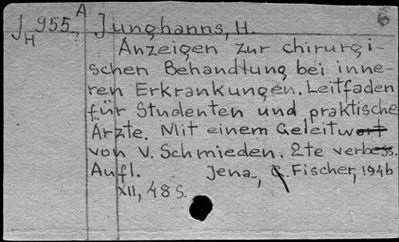 J 955, A Junghanns, H. 6
H
Anzeigen zur chirurgi-
schen Behandlung bei inne-
ren Erkrankungen. Leitfaden
für Studenten und praktische
Ärzte. Mit einem Geleitwort
von V. Schmieden. 2te verbess.
Aufl. Jena, G. Fischer, 1946
XII, 48 S.